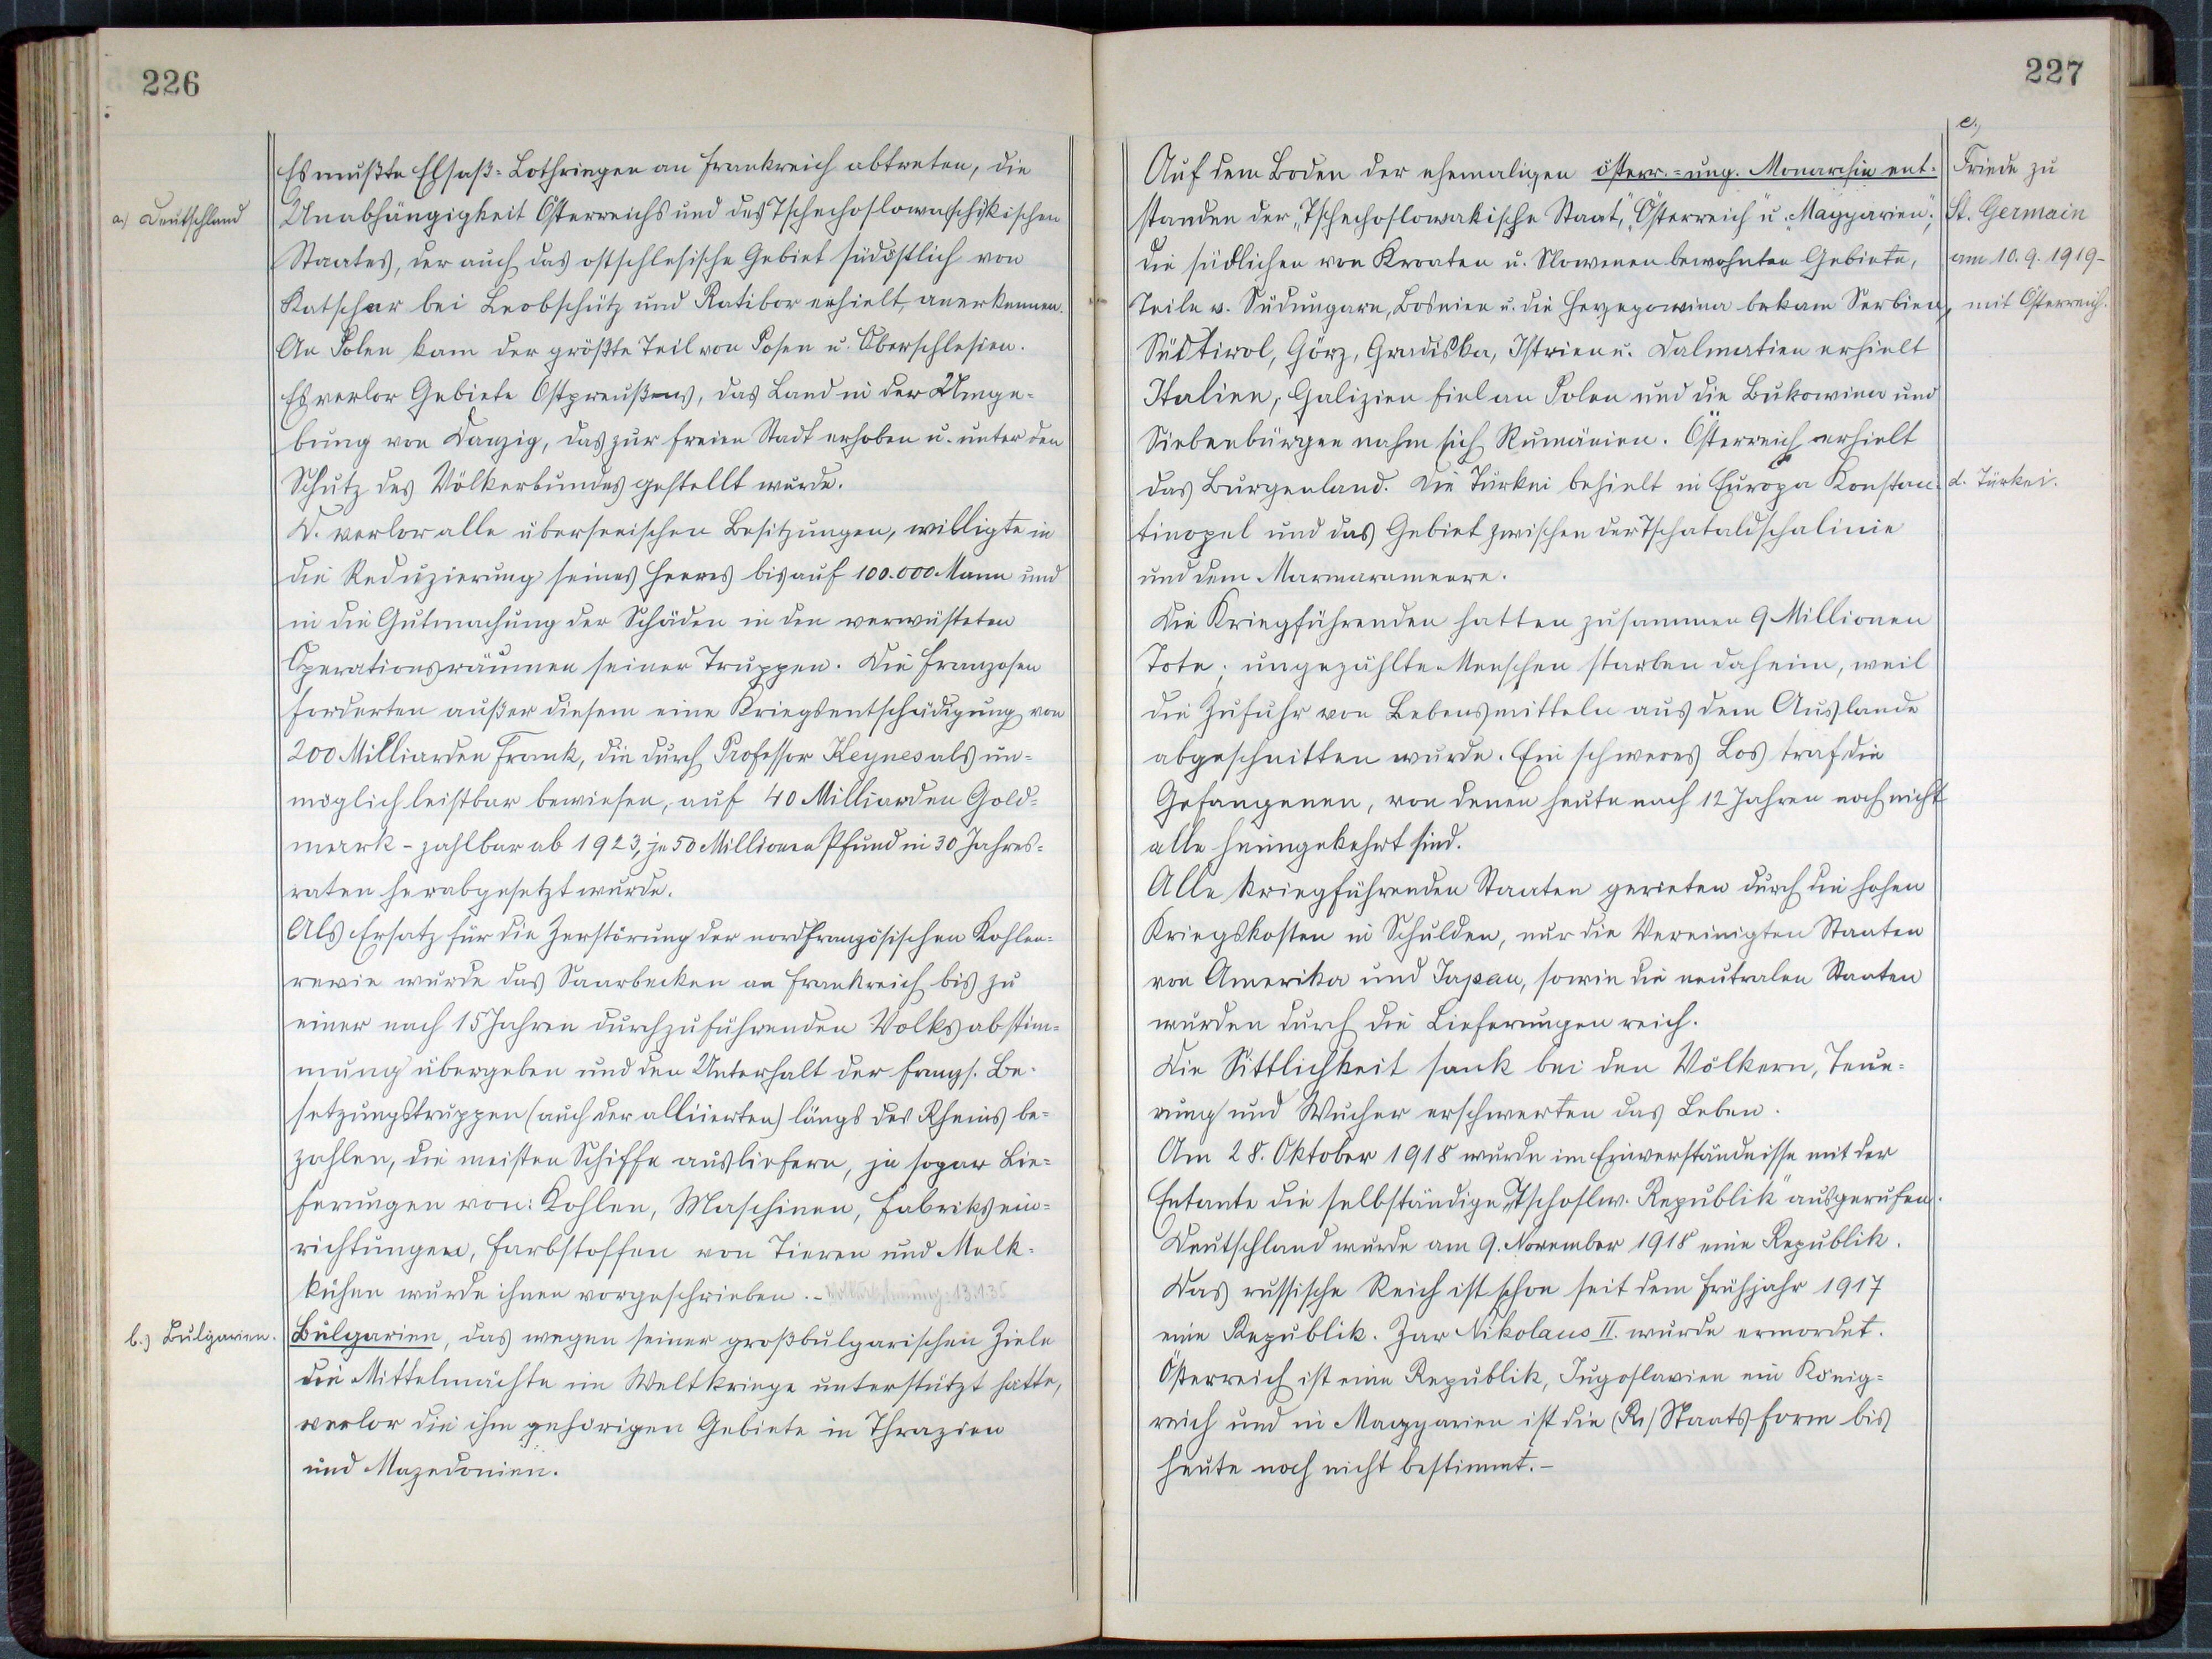 226
a.) Deutschland
Es mußte Elsaß=Lothringen an Frankreich abtreten, die
Unabhängigkeit Österreichs und des Tschechoslowa(schi)kischen
Staates, der auch das ostschlesische Gebiet südöstlich von
Katscher bei Leobschütz und Ratibor erhielt, anerkennen.
An Polen kam der größte Teil von Posen u. Oberschlesien.
Es verlor Gebiete Ostpreußens, das Land in der Umge=
bung von Danzig, das zur freien Stadt erhoben u. unter den
Schutz des Völkerbundes gestellt wurde.
D. verlor alle überseeischen Besitzungen, willigte in
die Reduzierung seines Heeres bis auf 100.000 Mann und
in die Gutmachung der Schäden in den verwüsteten
Operationsräumen seiner Truppen. Die Franzosen
forderten außer diesem eine Kriegsentschädigung von
200 Milliarden Frank, die durch Professor Keynes als un=
möglich leistbar bewiesen, auf 40 Milliarden Gold=
mark - zahlbar ab 1923, je 50 Millionen Pfund in 30 Jahres=
raten herabgesetzt wurde.
Als Ersatz für die Zerstörung der nordfranzösischen Kohlen=
revie wurde das Saarbecken an Frankreich bis zu
einer nach 15 Jahren durchzuführenden Volksabstim=
mung übergeben und den Unterhalt der franz. Be=
setzungstruppen (auch der alliierten) längs des Rheins be=
zahlen, die meisten Schiffe ausliefern, ja sogar Lie=
ferungen von: Kohlen, Maschinen, Fabriksein=
richtungen, Farbstoffen von Tieren und Melk=
kühen wurde ihnen vorgeschrieben. - 13.1.35
b.) Bulgarien.
Bulgarien, das wegen seiner großbulgarischen Ziele
die Mittelmächte im Weltkriege unterstützt hatte,
verlor die ihm gehörigen Gebiete in Thrazien
und Mazedonien.
227
c.,
Friede zu
St. Germain
am 10.9.1919 -
mit Österreich.
Auf dem Boden der ehemaligen österr.=ung. Monarchie ent=
standen der „Tschechoslowakische Staat“, „Österreich“ u. „Magyarien“;
die südlichen von Kroaten u. Slowenen bewohnten Gebiete,
Teile v. Südungarn, Bosnien u. die Herzegowina bekam Serbien,
Südtirol, Görz, Gradiska, Istrien u. Dalmatien erhielt
Italien, Galizien fiel an Polen und die Bukowina und
Siebenbürgen nahm sich Rumänien. Österreich erhielt
das Burgenland. Die Türkei behielt in Europa Konstan=
d. Türkei.
tinopel und das Gebiet zwischen der Tschataldschalinie
und dem Marmarameere.
Die Kriegführenden hatten zusammen 9 Millionen
Tote; ungezählte Menschen starben daheim, weil
die Zufuhr von Lebensmitteln aus dem Auslande
abgeschnitten wurde. Ein schweres Los traf die
Gefangenen, von denen heute nach 12 Jahren noch nicht
alle heimgekehrt sind.
Alle kriegführenden Staaten gerieten durch die hohen
Kriegskosten in Schulden, nur die Vereinigten Staaten
von Amerika und Japan, sowie die neutralen Staaten
wurden durch die Lieferungen reich.
Die Sittlichkeit sank bei den Völkern, Teue=
rung und Wucher erschwerten das Leben.
Am 28. Oktober 1918 wurde im Einverständnisse mit der
Entante die selbständige „Tschoslw. Republik“ ausgerufen.
Deutschland wurde am 9. November 1918 eine Republik.
Das russische Reich ist schon seit dem Frühjahr 1917
eine Republik. Zar Nikolaus II. wurde ermordet.
Österreich ist eine Republik, Jugoslavien ein König=
reich und in Magyarien ist die (Re) Staatsform bis
heute noch nicht bestimmt. -